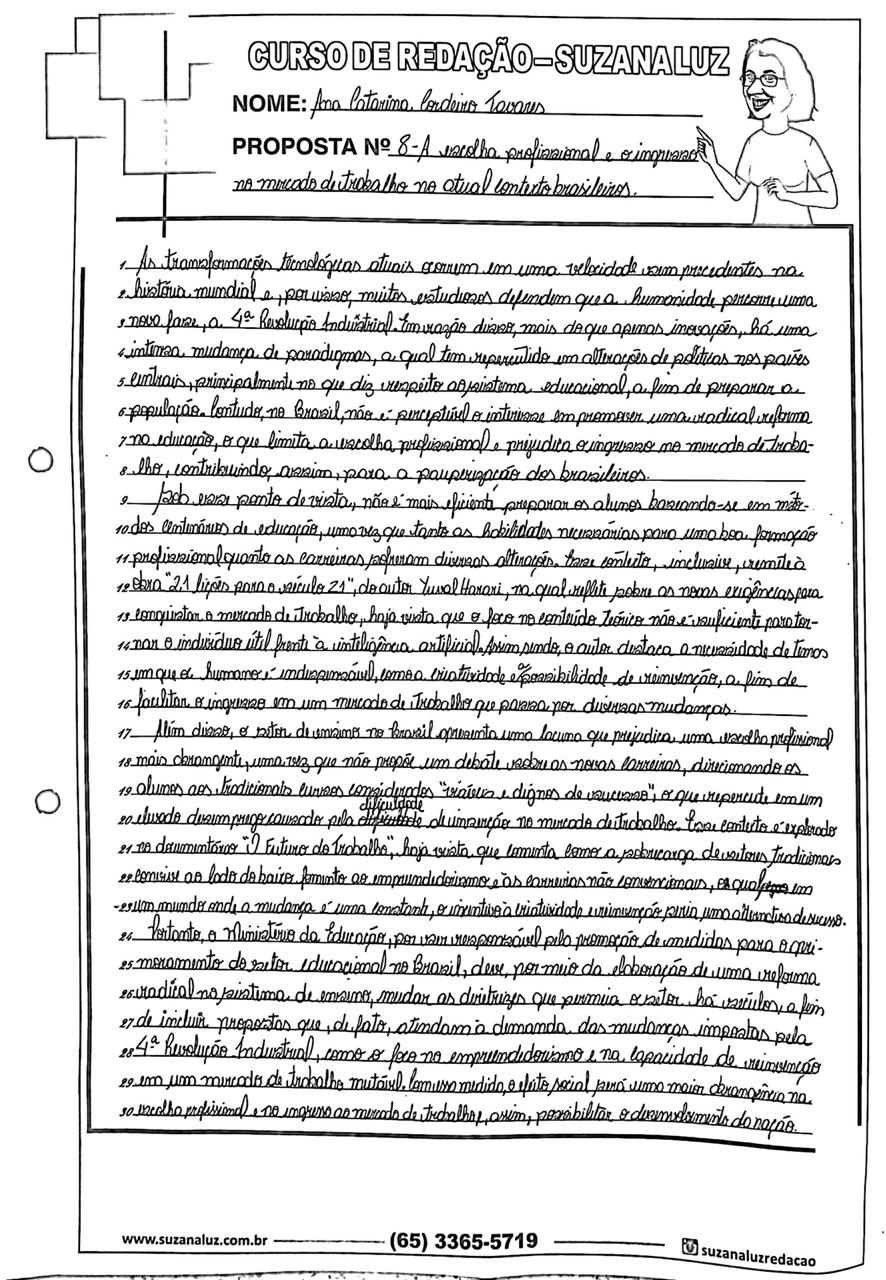 CURSO DE REDAÇÃO-SUZANA LUZ
NOME: Ana Catarina Cordeiro Tavares
PROPOSTA Nº 8-A escolha profissional e o ingresso
no mercado de trabalho no atual contexto brasileiros.
1 As transformações tecnológicas atuais ocorrem em uma velocidade sem precedentes na
2 história mundial e, por isso, muitos estudiosos defendem que a humanidade percorre uma
3 nova fase, a 4ª Revolução Industrial. Em razão disso, mais do que apenas inovações, há uma
4 intensa mudança de paradigmas, a qual tem repercutido em alterações de políticas nos países
5 centrais, principalmente no que diz respeito ao sistema educacional, a fim de preparar a
6 população. Contudo, no Brasil, não é perceptível o interesse em promover uma radical reforma
7 na educação, o que limita a escolha profissional e prejudica o ingresso no mercado de traba-
8 lho, contribuindo, assim, para a pauperização dos brasileiros.
9 Sob esse ponto de vista, não é mais eficiente preparar os alunos baseando-se em méto-
10 dos centenários de educação, uma vez que tanto as habilidades necessárias para uma boa formação
11 profissional quanto as carreiras sofreram diversas alterações. Esse contexto, inclusive, remite à
12 obra "21 lições para o século 21", do autor Yuval Harari, na qual reflete sobre as novas exigências para
13 conquistar o mercado de trabalho, haja vista que o foco no conteúdo teórico não é suficiente para tor-
14 nar o indivíduo útil frente à inteligência artificial. Assim sendo, o autor destaca a necessidade de temas
15 em que o humano é indispensável, como a criatividade e a possibilidade de reinvenção, a fim de
16 facilitar o ingresso em um mercado de trabalho que passa por diversas mudanças.
17 Além disso, o setor de ensino no Brasil apresenta uma lacuna que prejudica uma escolha profissional
18 mais abrangente, uma vez que não propõe um debate sobre as novas carreiras, direcionando os
19 alunos aos tradicionais cursos considerados "viáveis e dignos de sucesso", o que repercute em um
20 elevado desemprego causado pela dificuldade de inserção no mercado de trabalho. Esse contexto é explorado
21 no documentário "O Futuro do Trabalho", haja vista que comenta como a sobrecarga de setores tradicionais
22 convive ao lado do baixo fomento ao empreendedorismo e às carreiras não convencionais, os quais em
23 um mundo onde a mudança é uma constante, o incentivo à criatividade e reinvenção seria uma alternativa de sucesso.
24 Portanto, o Ministério da Educação, por ser responsável pela promoção de medidas para o apri-
25 moramento do setor educacional no Brasil, deve, por meio da elaboração de uma reforma
26 radical no sistema de ensino, mudar as diretrizes que permeia o setor há séculos, a fim
27 de incluir propostas que, de fato, atendam à demanda das mudanças impostas pela
28 4ª Revolução Industrial, como o foco no empreendedorismo e na capacidade de reinvenção
29 em um mercado de trabalho mutável. Com essa medida, o efeito social será uma maior abrangência na
30 escolha profissional e no ingresso ao mercado de trabalho e, assim, possibilitar o desenvolvimento da nação.
www.suzanaluz.com.br (65) 3365-5719 suzanaluzredacao